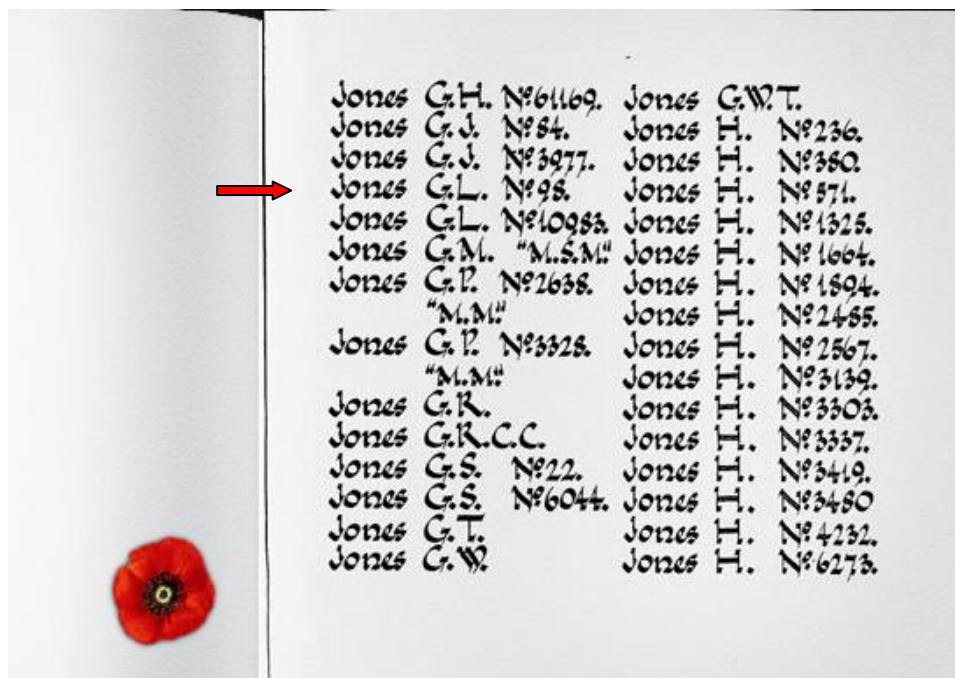 Jones G.H. Nº61169.
Jones G.J. Nº84.
Jones G.J. Nº3977.
Jones G.L. Nº98.
Jones G.L. Nº10983.
Jones G.M. "M.S.M."
Jones G.P. Nº2638.
"M.M."
Jones G.P. Nº3328.
"M.M."
Jones G.R.
Jones G.R.C.C.
Jones G.S. Nº22.
Jones G.S. Nº6044.
Jones G.T.
Jones G.W.
Jones G.W.T.
Jones H. Nº236.
Jones H. Nº380.
Jones H. Nº571.
Jones H. Nº1325.
Jones H. Nº1664.
Jones H. Nº1894.
Jones H. Nº2485.
Jones H. Nº2567.
Jones H. Nº3139.
Jones H. Nº3303.
Jones H. Nº3337.
Jones H. Nº3419.
Jones H. Nº3480
Jones H. Nº4232.
Jones H. Nº6273.